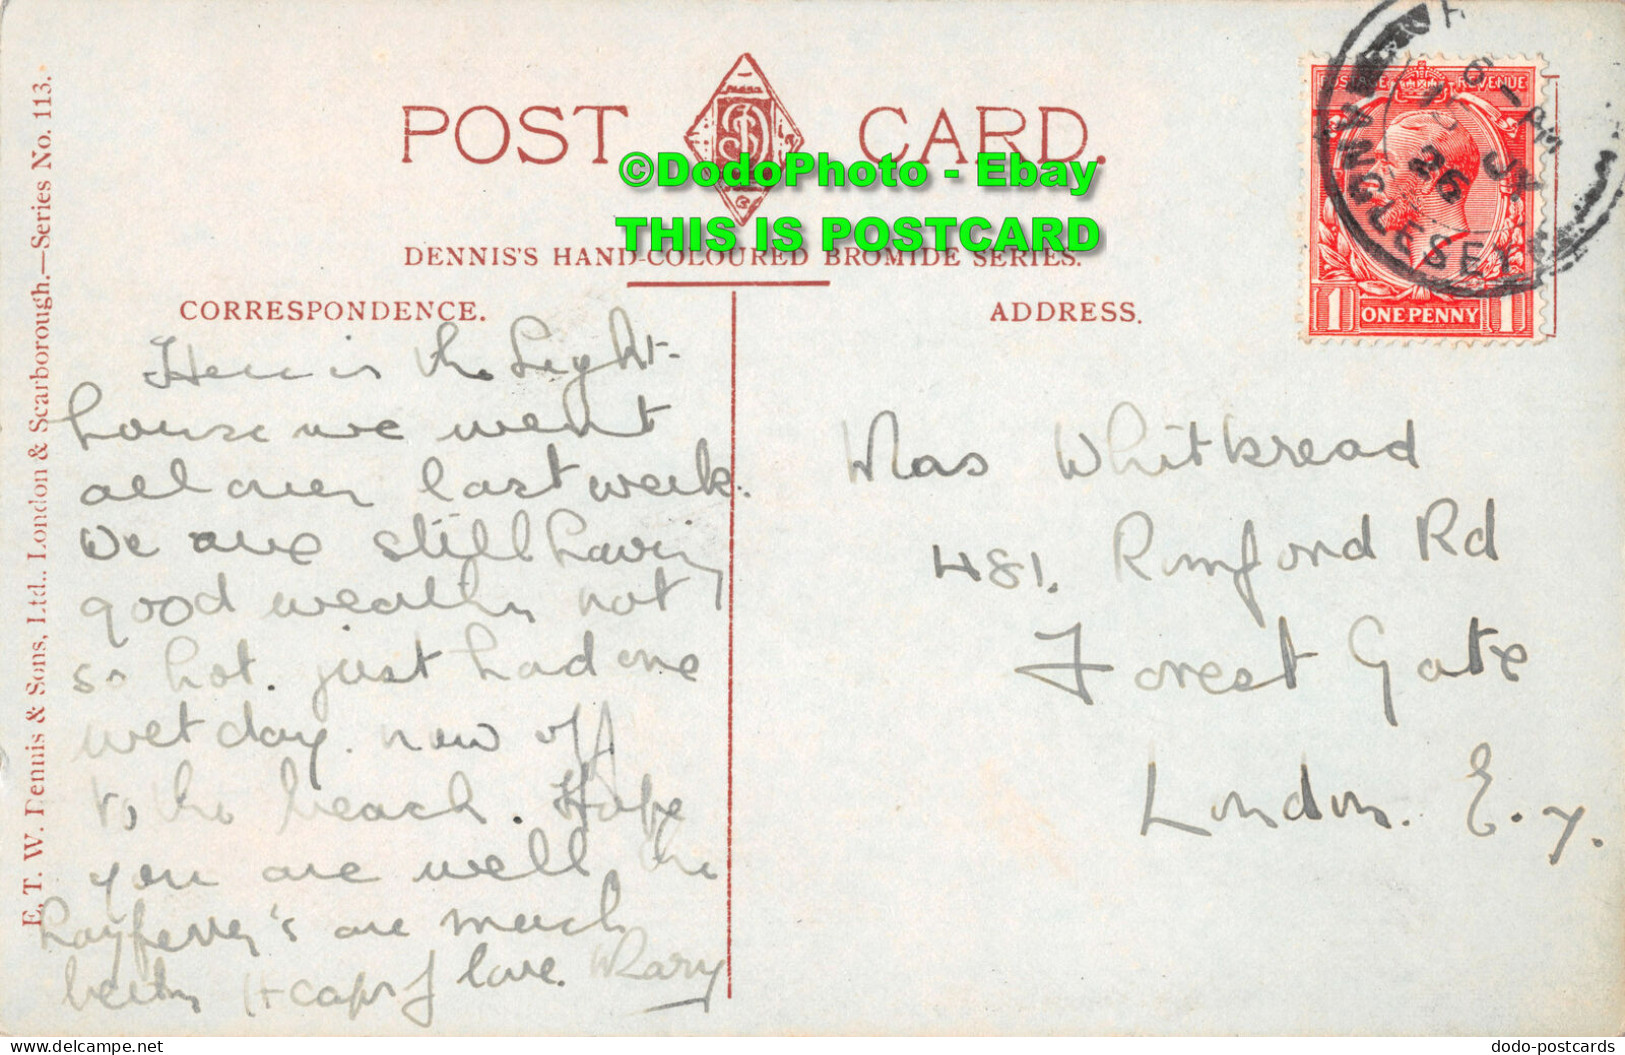 POST CARD.
DENNIS'S HAND-COLOURED BROMIDE SERIES.
©DodoPhoto - Ebay
THIS IS POSTCARD
E. T. W. Dennis & Sons, Ltd., London & Scarborough.—Series No. 113.
CORRESPONDENCE.
Here is the Light-
house we went
all over last week.
We are still having
good weather not
so hot. just had one
wet day. now off
to the beach. Hope
you are well the
are much
love Mary
ADDRESS.
POSTAGE REVENUE
1 ONE PENNY 1
ANGLESEY
26
Mrs Whitbread
481. Romford Rd
Forest Gate
London. E.7.
dodo-postcards